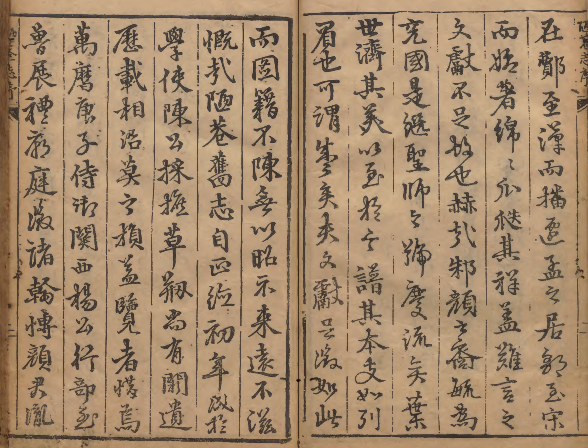 在鄹至漢而播遷孟之居鄒至宋
而始著綿〻瓜瓞其祥蓋難言之
文獻不足故也赫哉邾顏之裔毓為
兗國是繼聖師之號慶流奕葉
世濟其美以至於今譜其本支如列
眉也可謂盛矣夫文獻足徵如此
而圖籍不陳無以昭示來遠不滋
慨哉陋巷舊志自正德初年成於
學使陳公採摭草刱尚有闕遺
歷載相沿莫之損益覽者惜焉
萬曆庚子侍御關西楊公行部至
魯展禮廟庭徵諸翰博顏君胤